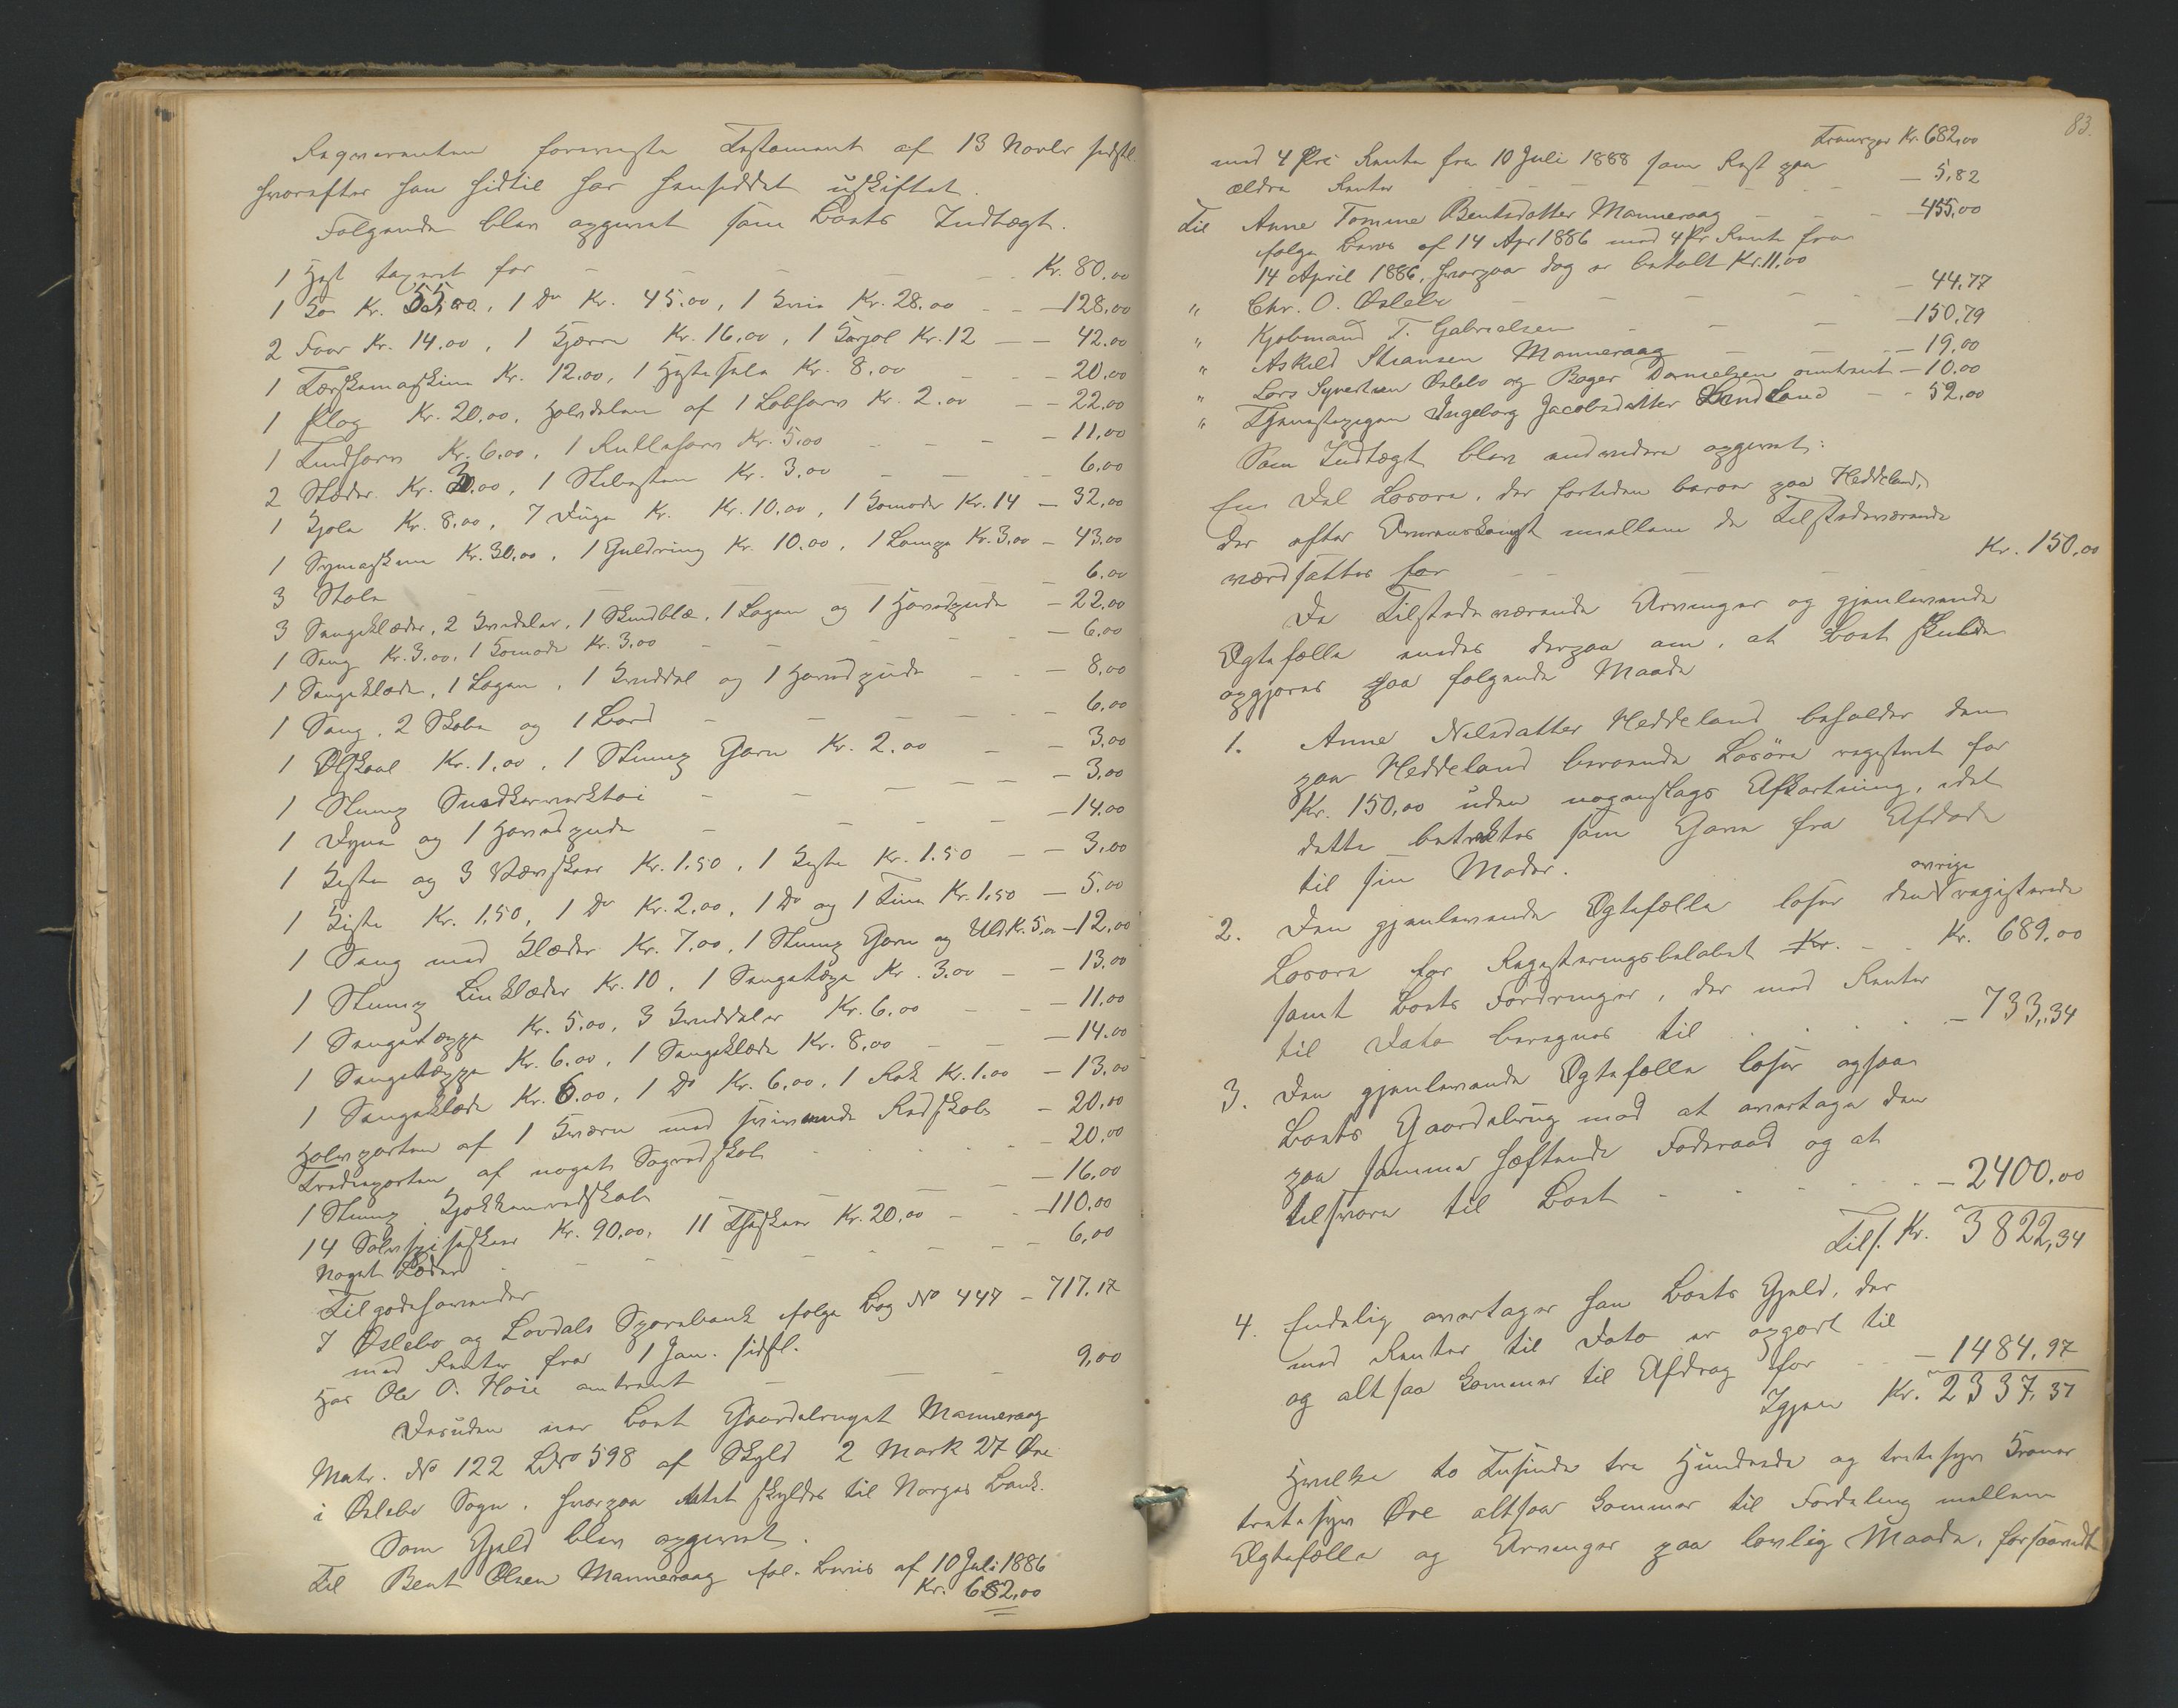 Requirenten foreviste Testament af 13 Novbr sidstl.
hvorefter han hidtil har hensiddet uskiftet.
Følgende blev opgivet som Boets Indtægt.
1 Hest taxeret for — Kr. 80.00
1 Ko Kr. 55.00, 1 Do Kr. 45.00, 1 Kvie Kr. 28.00 — 128.00
2 Faar Kr. 14.00, 1 Kjærre Kr. 16.00, 1 Karjol Kr. 12 — 42.00
1 Tærskemaskine Kr. 12.00, 1 Hestesele Kr. 8.00 — 20.00
1 Plog Kr. 20.00, Halvdelen af 1 Kr. 2.00 — 22.00
1 Tindharv Kr. 6.00, 1 Rulleharv Kr. 5.00 — 11.00
2 Slæder Kr. 3.00, 1 Slibesten Kr. 3.00 — 6.00
1 Kr. 8.00, 7 Kr. Kr. 10.00, 1 Komode Kr. 14 — 32.00
1 Symaskine Kr. 30.00, 1 Guldring Kr. 10.00, 1 Lampe Kr. 3.00 — 43.00
3 Stole — 6.00
3 Sengeklæder, 2 Kvideler, 1 Skindblæ, 1 Lagen og 1 Hovedpude — 22.00
1 Seng Kr. 3.00, 1 Komode Kr. 3.00 — 6.00
1 Sengeklæde, 1 Lagen, 1 Kviddel og 1 Hovedpude — 8.00
1 Seng, 2 Skabe og 1 Bord — 6.00
1 Ølskaal Kr. 1.00, 1 Slump Garn Kr. 2.00 — 3.00
1 Slump Snedkerverktøi — 3.00
1 Dyne og 1 Hovedpude — 14.00
1 Kiste og 3 Kr. 1.50, 1 Kiste Kr. 1.50 — 3.00
1 Kiste Kr. 1.50, 1 Do Kr. 2.00, 1 Do og 1 Tine Kr. 1.50 — 5.00
1 Seng med Klæder Kr. 7.00, 1 Slump Garn og Uld K. 5.00 — 12.00
1 Slump Linklæder Kr. 10, 1 Sengetæpe Kr. 3.00 — 13.00
1 Sengetæppe Kr. 5.00, 3 Kviddeler Kr. 6.00 — 11.00
1 Sengetæppe Kr. 6.00, 1 Sengeklæde Kr. 8.00 — 14.00
1 Sengeklæde Kr. 6.00, 1 Do Kr. 6.00, 1 Rok Kr. 1.00 — 13.00
Halvparten af 1 Kværn med Redskab — 20.00
Tredieparten af noget Sagredskab — 20.00
1 Slump Kjøkkenredskab — 16.00
14 Sølvspiseskeer Kr. 90.00, 11 Theskeer Kr. 20.00 — 110.00
Noget Læder — 6.00
Tilgodehavender
I Øslebø og Lovdals Sparebank ifølge Bog No 447 — 717.17
med Renter fra 1 Jan. sidstl.
Hos Ole O. Høie omtrent — 9.00
Desuden eier Boet Gaardebruget Manneraag
Matr. No 122 LNo 598 af Skyld 2 Mark 27 Øre
i Øslebø Sogn, hvorpaa intet skyldes til Norges Bank.
Som Gjeld blev opgivet.
Til Bent Olsen Manneraag føl. Bevis af 10 Juli 1886
Kr. 682.00
83.
Transpor Kr. 682.00
med 4 Pr. Rente fra 10 Juli 1888 som Rest paa
ældre Renter — 5.82
Til Anne Tomine Bentsdatter Manneraag — 455.00
følge Bevis af 14 Apr 1886 med 4 Pr. Rente fra
14 April 1886, hvorpaa dog er betalt Kr. 11.00
" Chr. O. Øslebø — 44.77
" Kjøbmand T. Gabrielsen — 150.79
" Askild Manneraag — 19.00
" Lars Syvertsen Øslebø og Danielsen omtrent — 10.00
" Tjenestepigen Ingeborg Jacobsdatter Lindland — 52.00
Som Indtægt blev endvidere opgivet:
En Del Løsøre, der fortiden beror paa Heddeland,
der efter Overenskomst mellem de Tilstedeværende
værdsattes for — Kr. 150.00
De Tilstedeværende Arvinger og gjenlevende
Ægtefælle enedes derpaa om, at Boet skulde
opgjøres paa følgende Maade
1. Anne Nilsdatter Heddeland beholder den
paa Heddeland beroende Løsøre registeret for
Kr. 150.00 uden nogenslags Afkortning, idet
dette betraktes som Gave fra Afdøde
til sin Moder.
2. Den gjenlevende Ægtefælle løser den øvrige registerede
Løsøre for Registeringsbeløbet Kr. — Kr. 689.00
samt Boets Fordringer, der med Renter
til Dato beregnes til — 733.34
3. Den gjenlevende Ægtefælle løser ogsaa
Boets Gaardebrug mod at overtage den
paa samme hæftende Føderaad og at
tilsvare til Boet — 2400.00
Tils. Kr. 3822.34
4. Endelig overtager han Boets Gjeld, der
med Renter til Dato er opgjort til
og altsaa kommer til Afdrag for — 1484.97
Igjen Kr. 2337.37
Hvilke to Tusinde tre Hundrede og tretisyv Kroner
tretisyv Øre altsaa kommer til Fordeling mellem
Ægtefælle og Arvinger paa lovlig Maade, forsaavidt